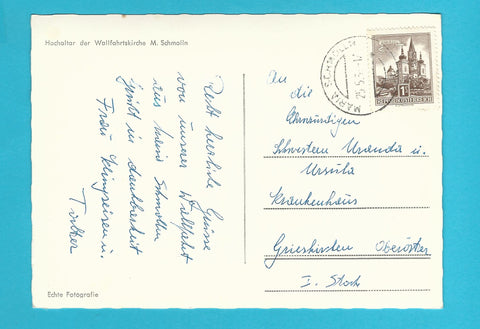 Hochaltar der Wallfahrtskirche M. Schmolln
Recht herzliche Grüsse
von unserer Wallfahrt
aus Maria Schmolln
grüßt in dankbarkeit
Frau Klingseisen u.
Tochter
Echte Fotografie
MARIA SCHMOLLN
REPUBLIK ÖSTERREICH
An
die
Ehrwürdigen
Schwestern Uranda u.
Ursula
Krankenhaus
Grieskirchen Oberöster
I. Stock